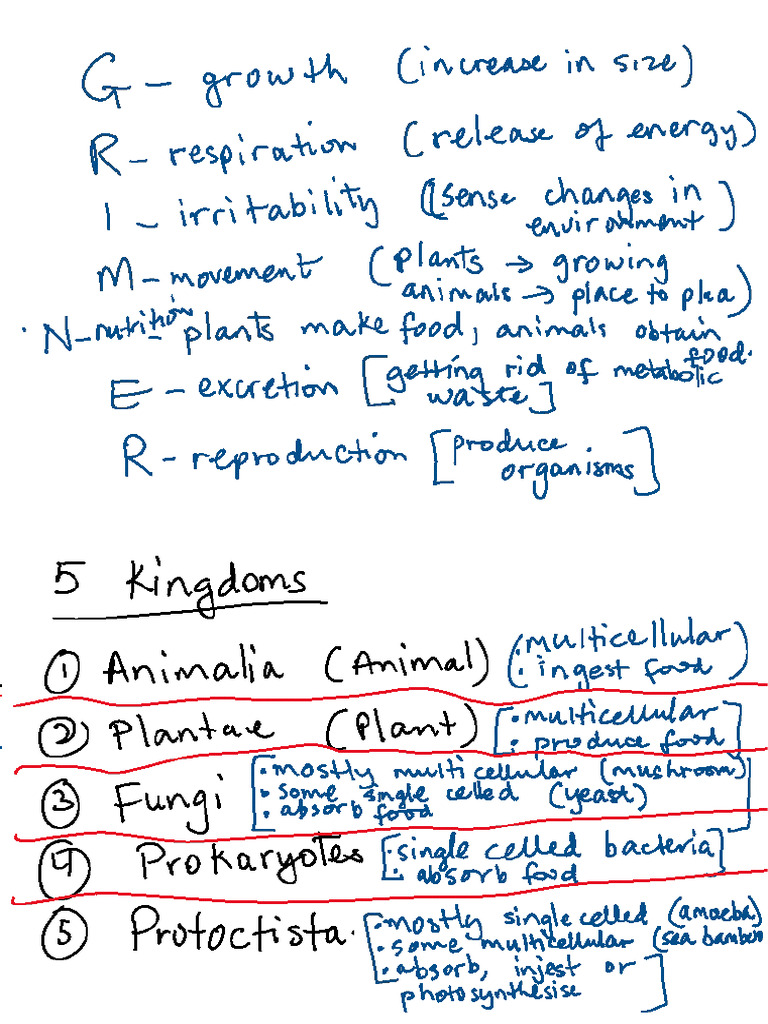 G - growth (increase in size)
R - respiration (release of energy)
I - irritability (sense changes in
environment)
M - movement (plants → growing
animals → place to plea)
· N - nutrition plants make food, animals obtain
food.
E - excretion [getting rid of metabolic
waste]
R - reproduction [produce
organisms]
5 Kingdoms
① Animalia (Animal) (· multicellular
· ingest food)
② Plantae (Plant) [· multicellular
· produce food]
③ Fungi [· mostly multicellular (mushroom)
· some single celled (yeast)
· absorb food]
④ Prokaryotes [· single celled bacteria
· absorb food]
⑤ Protoctista. [· mostly single celled (amoeba)
· some multicellular (sea bamboo
· absorb, injest or
photosynthesise]